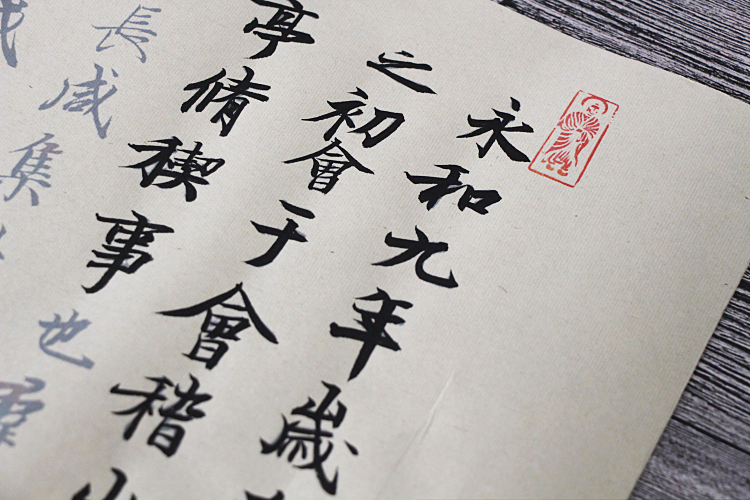 永和九年歲
之初會于會稽山
亭脩稧事也羣
長咸集